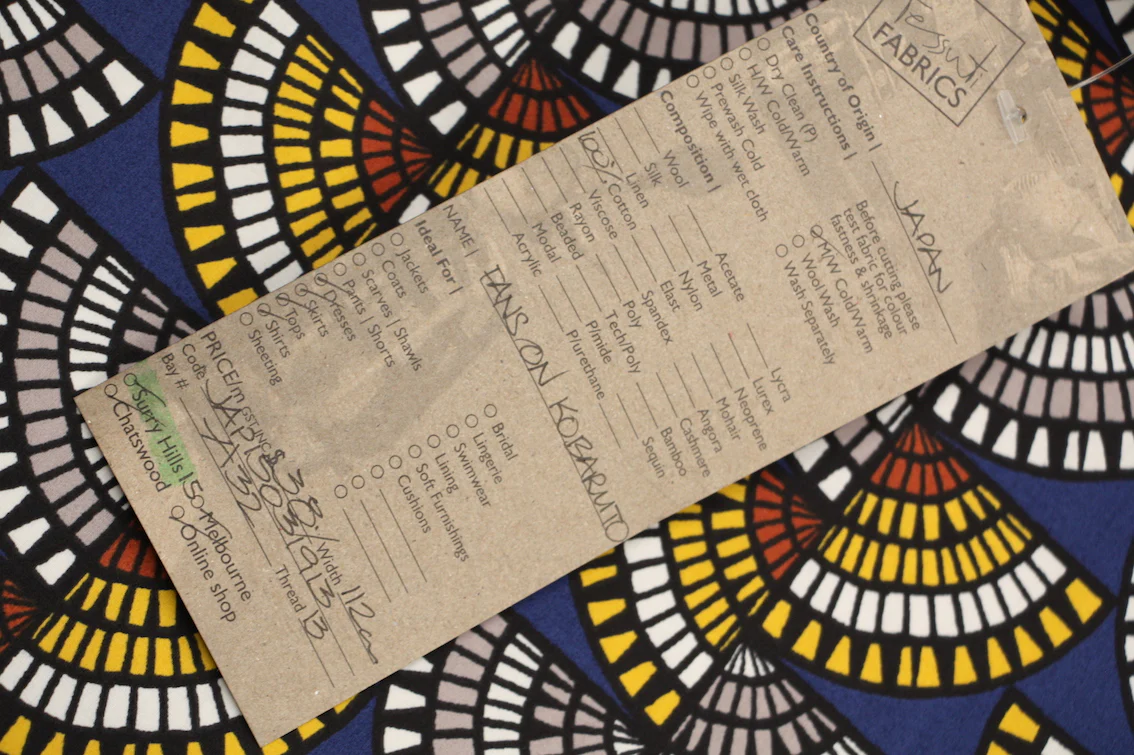 Tessuti
FABRICS
Country of Origin | JAPAN
Care Instructions |
Before cutting please
test fabric for colour
fastness & shrinkage
Dry Clean (P)
H/W Cold/Warm
Silk Wash
Prewash Cold
Wipe with wet cloth
M/W Cold/Warm
Wool Wash
Wash Separately
Composition |
Wool
Silk
Linen
100% Cotton
Viscose
Rayon
Beaded
Modal
Acrylic
Acetate
Metal
Nylon
Elast
Spandex
Poly
Tech/Poly
P/mide
P/urethane
Lycra
Lurex
Neoprene
Mohair
Angora
Cashmere
Bamboo
Sequin
NAME | FANS ON KOBARUTO
Ideal For |
Jackets
Coats
Scarves | Shawls
Pants | Shorts
Dresses
Skirts
Tops
Shirts
Sheeting
Bridal
Lingerie
Swimwear
Lining
Soft Furnishings
Cushions
PRICE/m GST INC $ 38/ Width 112cm
Code JAP1503191B
Bay #: 7A32 Thread 13
Surry Hills | 50 Melbourne
Chatswood Online shop